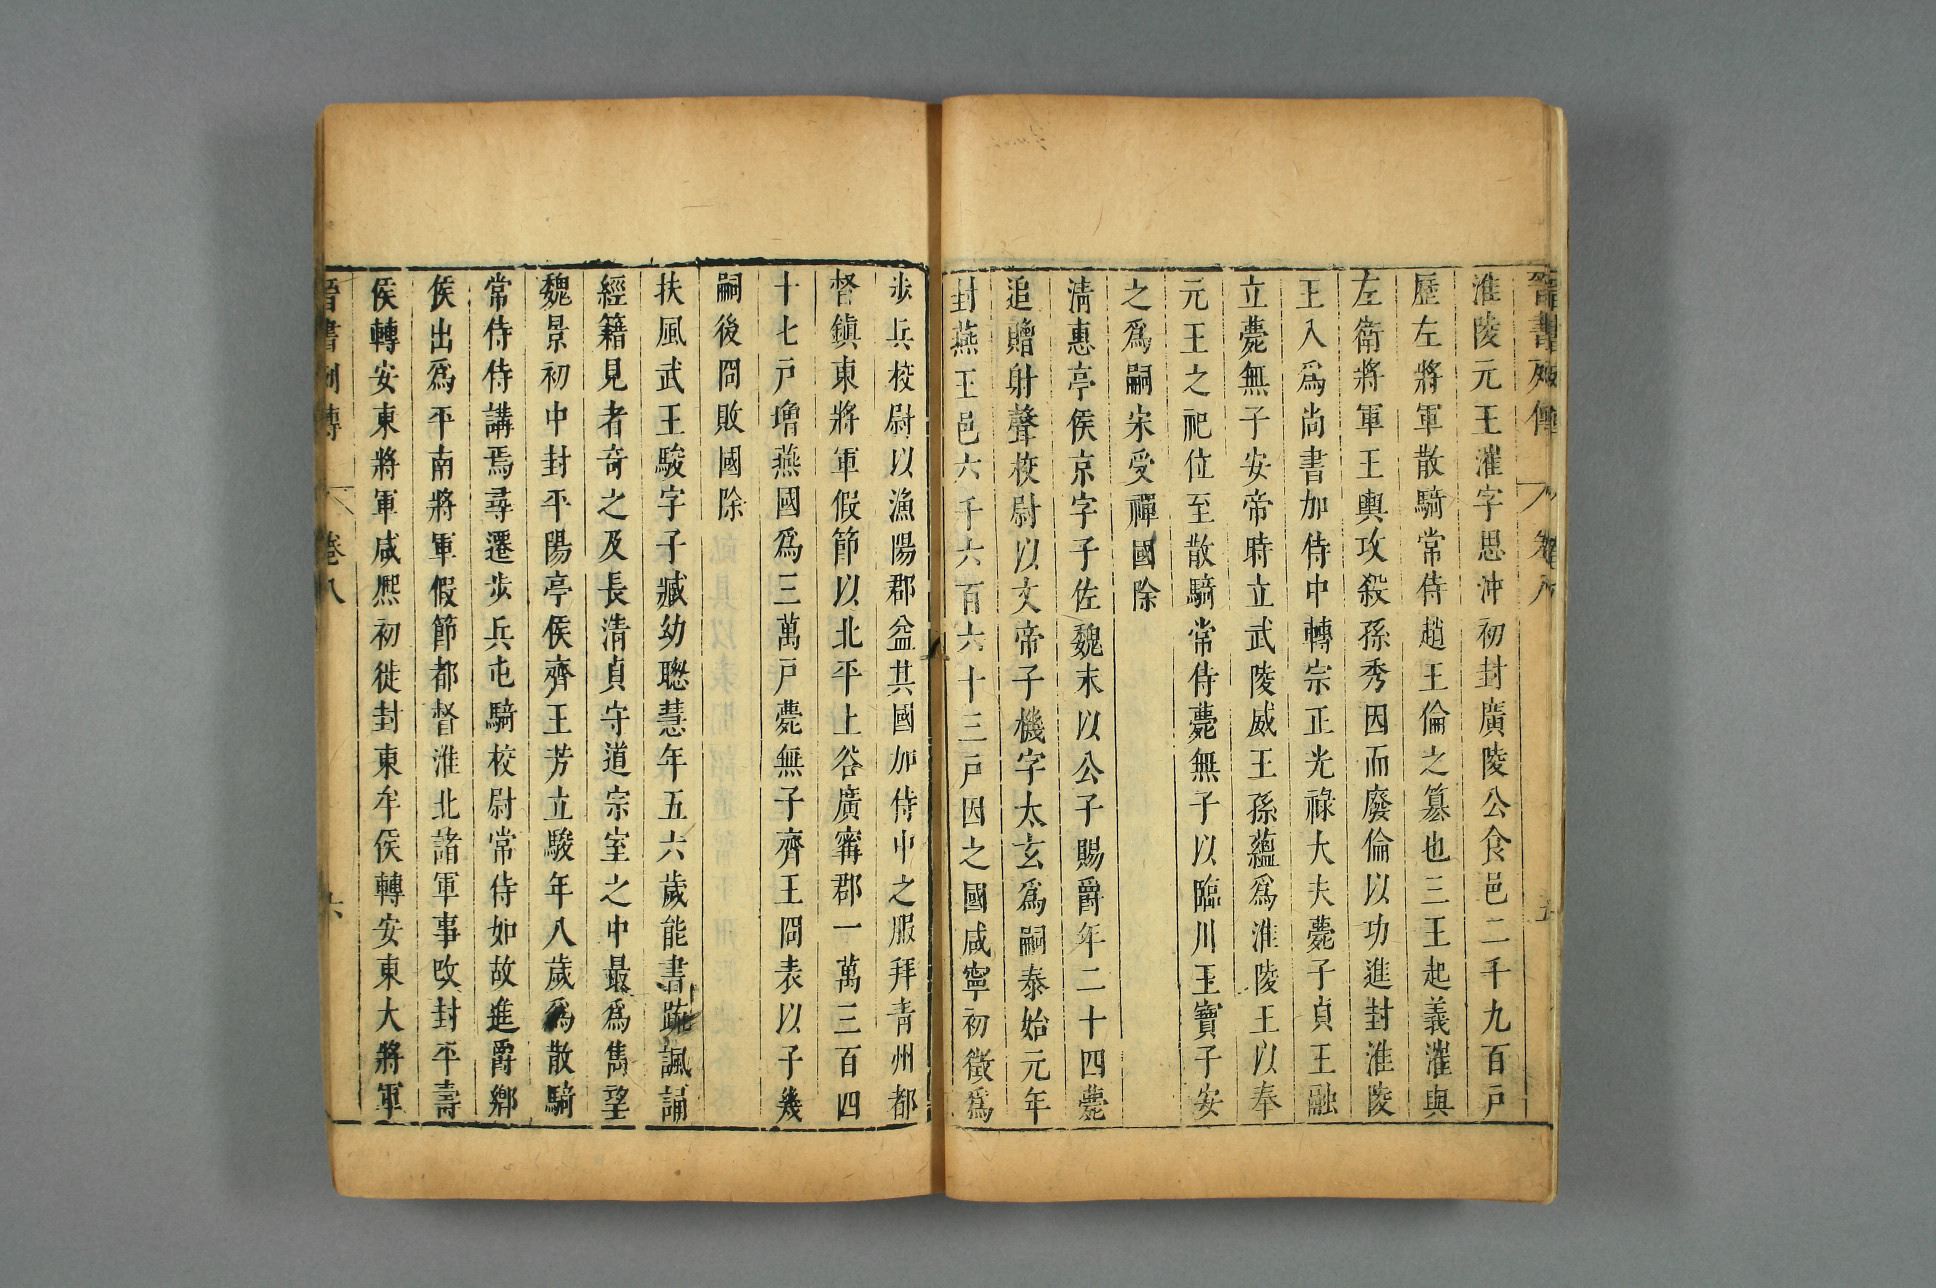 晉書列傳 卷八 五
淮陵元王漼字思沖初封廣陵公食邑二千九百戶
歷左將軍散騎常侍趙王倫之篡也三王起義漼與
左衛將軍王輿攻殺孫秀因而廢倫以功進封淮陵
王入爲尚書加侍中轉宗正光祿大夫薨子貞王融
立薨無子安帝時立武陵威王孫蘊爲淮陵王以奉
元王之祀位至散騎常侍薨無子以臨川王寶子安
之爲嗣宋受禪國除
清惠亭侯京字子佐魏末以公子賜爵年二十四薨
追贈射聲校尉以文帝子機字太玄爲嗣泰始元年
封燕王邑六千六百六十三戶因之國咸寧初徵爲
步兵校尉以漁陽郡益其國加侍中之服拜青州都
督鎮東將軍假節以北平上谷廣寗郡一萬三百四
十七戶增燕國爲三萬戶薨無子齊王冏表以子幾
嗣後冏敗國除
扶風武王駿字子臧幼聰慧年五六歲能書疏諷誦
經籍見者奇之及長清貞守道宗室之中最爲雋望
魏景初中封平陽亭侯齊王芳立駿年八歲爲散騎
常侍侍講焉尋遷步兵屯騎校尉常侍如故進爵鄉
侯出爲平南將軍假節都督淮北諸軍事改封平壽
侯轉安東將軍咸熙初徙封東牟侯轉安東大將軍
晉書列傳 卷八 六